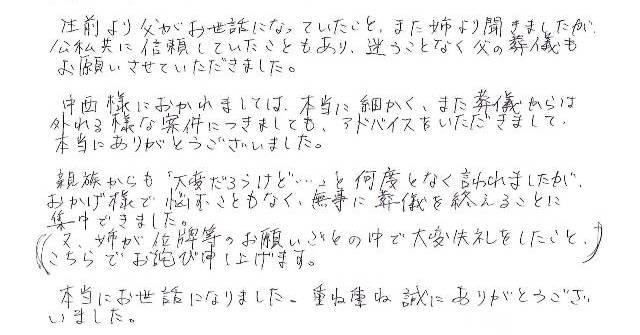 生前より父がお世話になっていたこと、また姉より聞きましたが、
公私共に信頼していたこともあり、迷うことなく父の葬儀も
お願いさせていただきました。
中西様におかれましては、本当に細かく、また葬儀からは
外れる様な案件につきましても、アドバイスをいただきまして、
本当にありがとうございました。
親族からも「大変だろうけど…」と何度となく言われましたが、
おかげ様で悩むこともなく、無事に葬儀を終えることに
集中できました。
(又、姉が位牌等のお願いごとの中で大変失礼をしたこと、
こちらでお詫び申し上げます。)
本当にお世話になりました。重ね重ね誠にありがとうござ
いました。